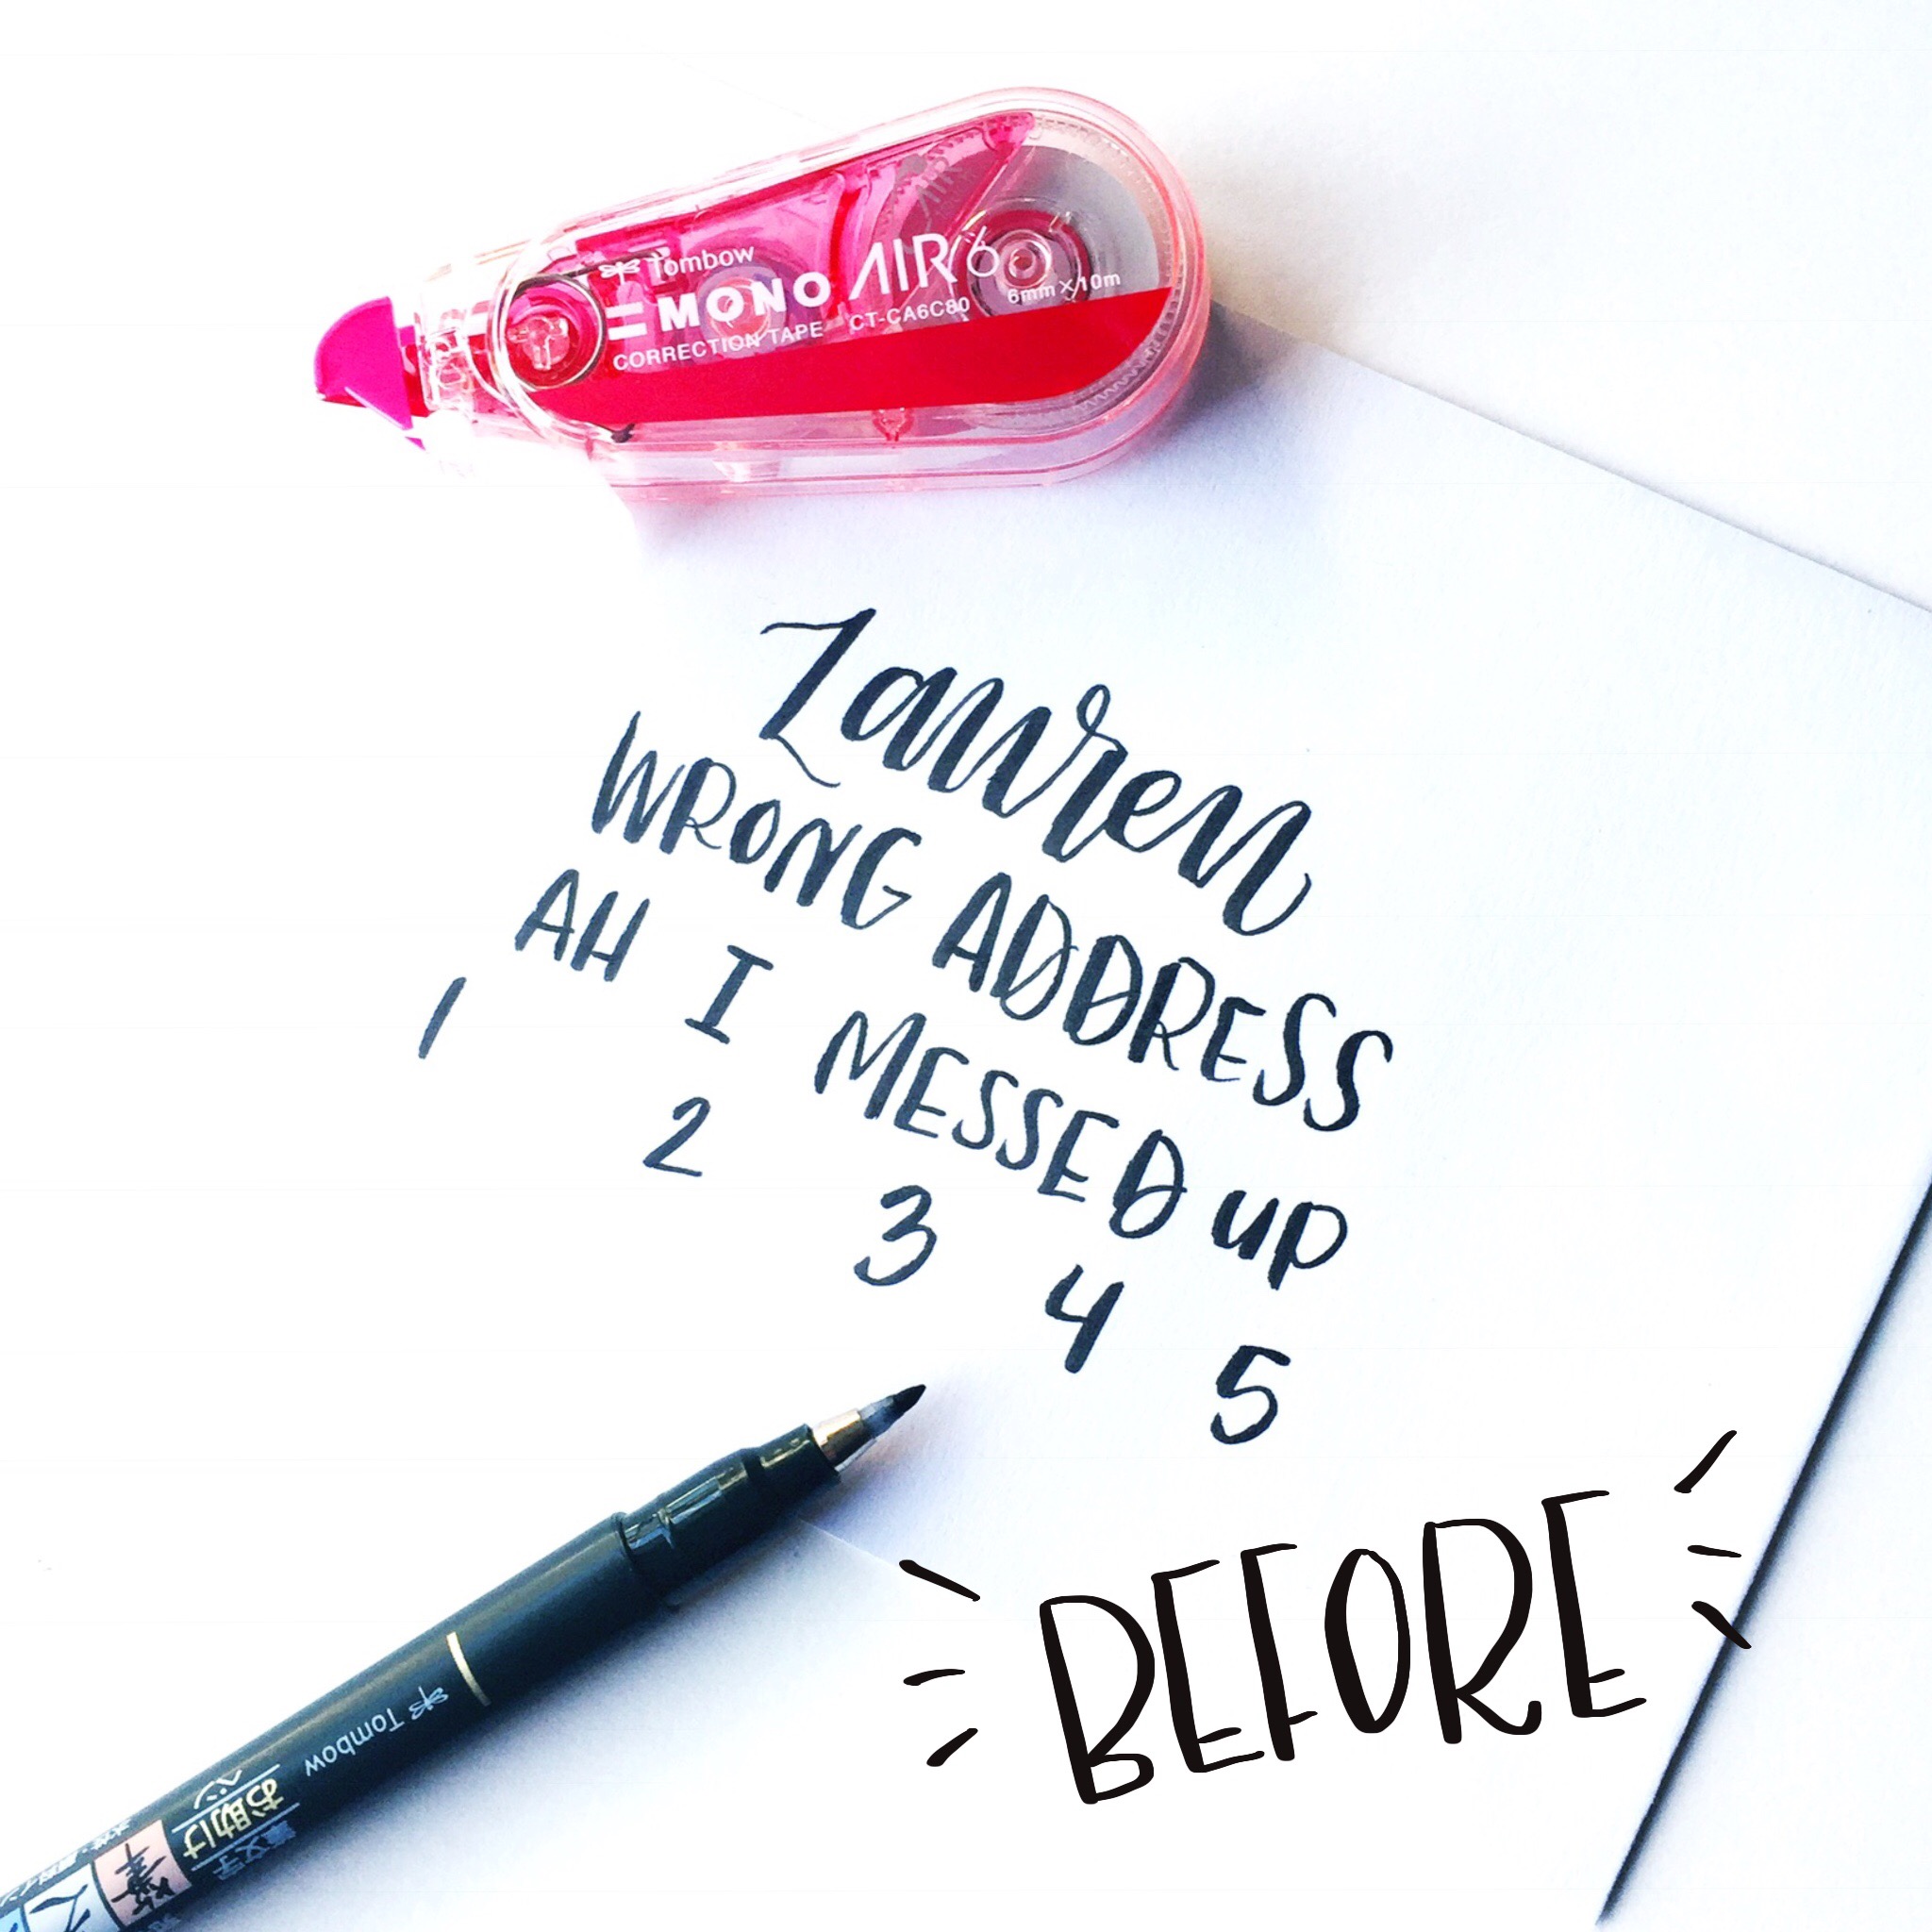 Tombow
MONO AIR6
CORRECTION TAPE CT-CA6C80 6mm×10m
Lauren
WRONG ADDRESS
AH I MESSED UP
1 2 3 4 5
BEFORE
Tombow
筆文字
お助け
ペン
筆